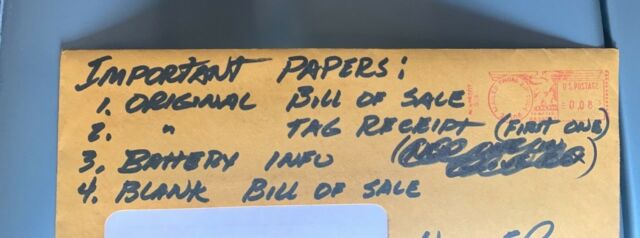 IMPORTANT PAPERS:
1. ORIGINAL BILL OF SALE
2. " TAG RECEIPT (FIRST ONE)
3. BATTERY INFO
4. BLANK BILL OF SALE
U.S. POSTAGE
0.08